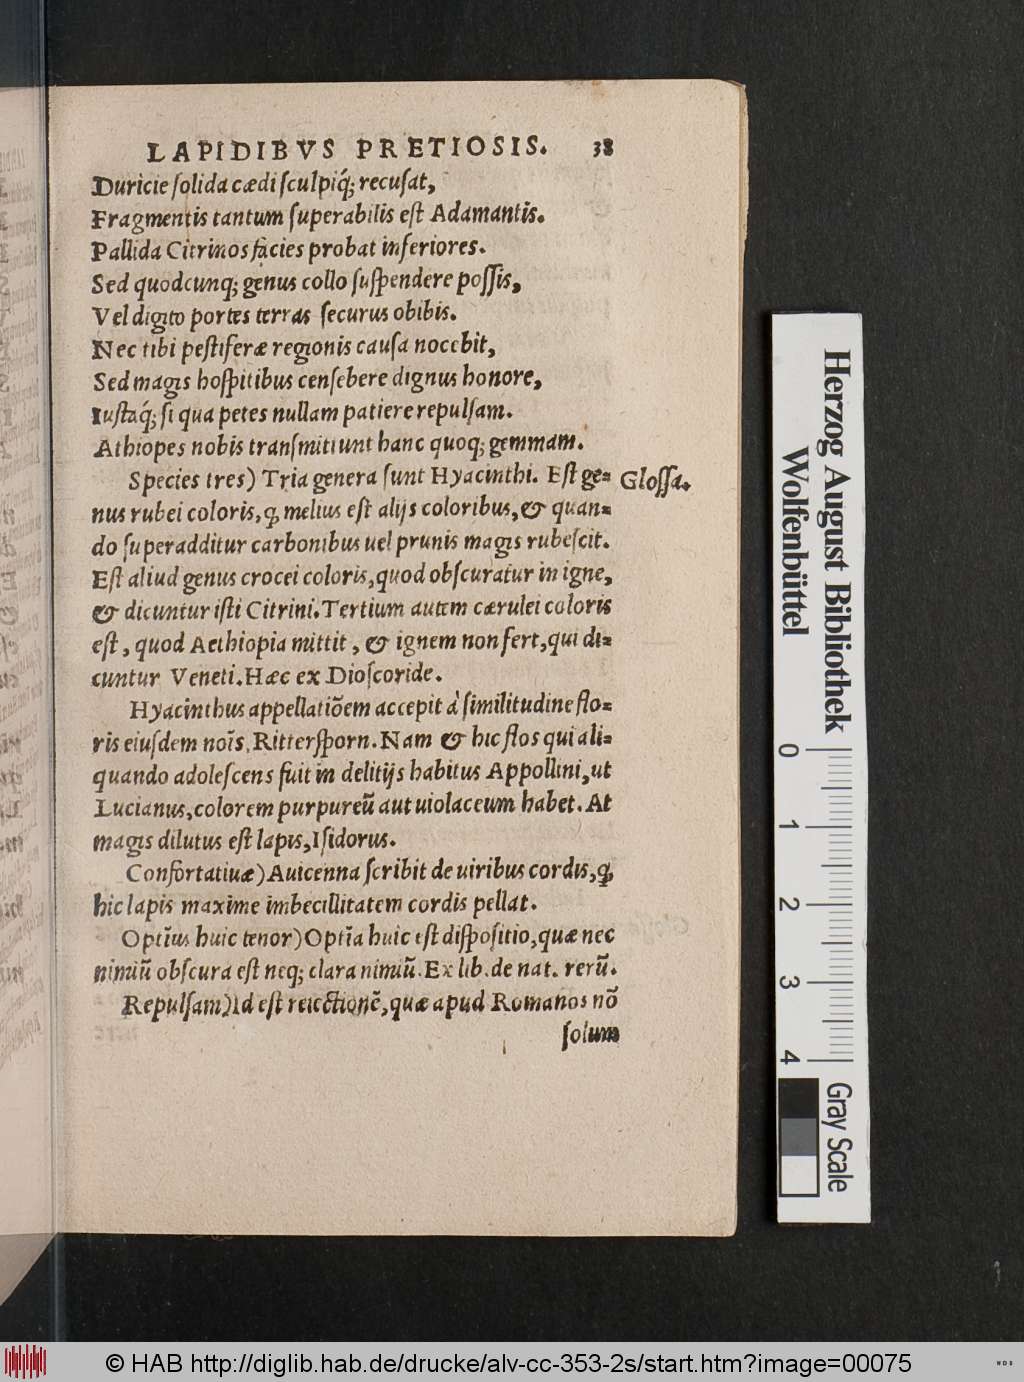 LAPIDIBVS PRETIOSIS. 38
Duricie ſolida cædi ſculpiq́; recuſat,
Fragmentis tantum ſuperabilis eſt Adamantis.
Pallida Citrinos facies probat inferiores.
Sed quodcunq; genus collo ſuſpendere poſſis,
Vel digito portes terras ſecurus obibis.
Nec tibi peſtiferæ regionis cauſa nocebit,
Sed magis hoſpitibus cenſebere dignus honore,
Iuſtaq́; ſi qua petes nullam patiere repulſam.
Athiopes nobis tranſmittunt hanc quoq; gemmam.
Species tres) Tria genera ſunt Hyacinthi. Eſt ge= Gloſſa.
nus rubei coloris, ꝙ melius eſt alijs coloribus, & quan=
do ſuperadditur carbonibus uel prunis magis rubeſcit.
Eſt aliud genus crocei coloris, quod obſcuratur in igne,
& dicuntur iſti Citrini. Tertium autem cærulei coloris
eſt, quod Aethiopia mittit, & ignem non fert, qui di=
cuntur Veneti. Hæc ex Dioſcoride.
Hyacinthus appellatiõem accepit à ſimilitudine flo=
ris eiuſdem noĩs, Ritterſporn. Nam & hic flos qui ali=
quando adoleſcens fuit in delitijs habitus Appollini, ut
Lucianus, colorem purpureũ aut uiolaceum habet. At
magis dilutus eſt lapis, Iſidorus.
Confortatiuæ) Auicenna ſcribit de uiribus cordis, ꝙ
hic lapis maxime imbecillitatem cordis pellat.
Optĩus huic tenor) Optĩa huic eſt diſpoſitio, quæ nec
nimiũ obſcura eſt neq; clara nimiũ. Ex lib. de nat. rerũ.
Repulſam) Id eſt reiectionẽ, quæ apud Romanos nõ
ſolum
Herzog August Bibliothek
Wolfenbüttel
0 1 2 3 4
Gray Scale
© HAB http://diglib.hab.de/drucke/alv-cc-353-2s/start.htm?image=00075